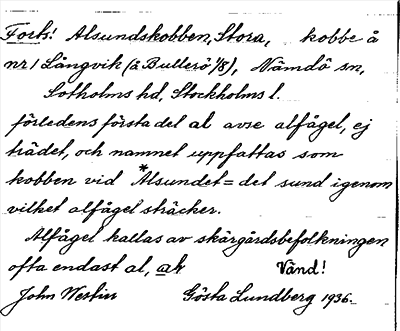 Forts! Alsundskobben, Stora, kobbe å
nr 1 Långvik (å Bullerö 1/8), Nämdö sn,
Sotholms hd, Stockholms l.
förledens första del al avse alfågel, ej
trädet, och namnet uppfattas som
kobben vid *Alsundet = det sund igenom
vilket alfågel sträcker.
Alfågel kallas av skärgårdsbefolkningen
ofta endast al,
Vänd!
John Westin Gösta Lundberg 1936.